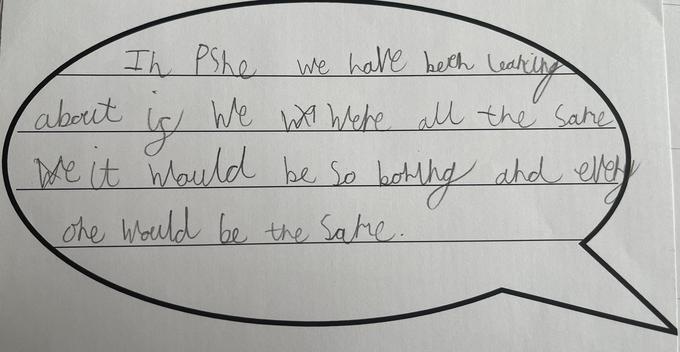 In PShe we have been learning
about if we were all the same
it would be so boring and every
one would be the same.